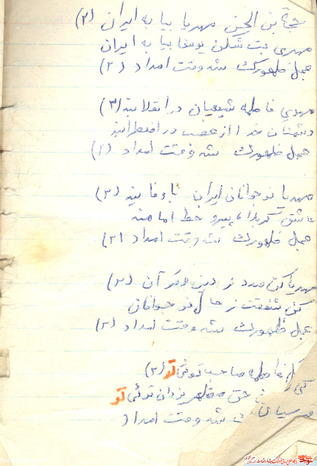 حجة بن الحسن مهدیا بیا به ایران (۲)
مهدی بت شکن یوسفا بیا به ایران
عجل ظهورک شد وقت امداد (۲)
مهدی فاطمه شیعیان در انقلابند (۲)
دشمنان خدا از غضب در اضطرابند
عجل ظهورک شد وقت امداد (۲)
مهدیا نوجوانان ایران باوفایند (۲)
عاشق کربلا پیرو خط امامند
عجل ظهورک شد وقت امداد (۲)
مهدیا کن مدد از دین و قرآن (۲)
کن شفقت ز حال نوجوانان
عجل ظهورک شد وقت امداد (۲)
فاطمه صاحب توئی تو (۲)
حق مظهر یزدان توئی تو
شد وقت امداد